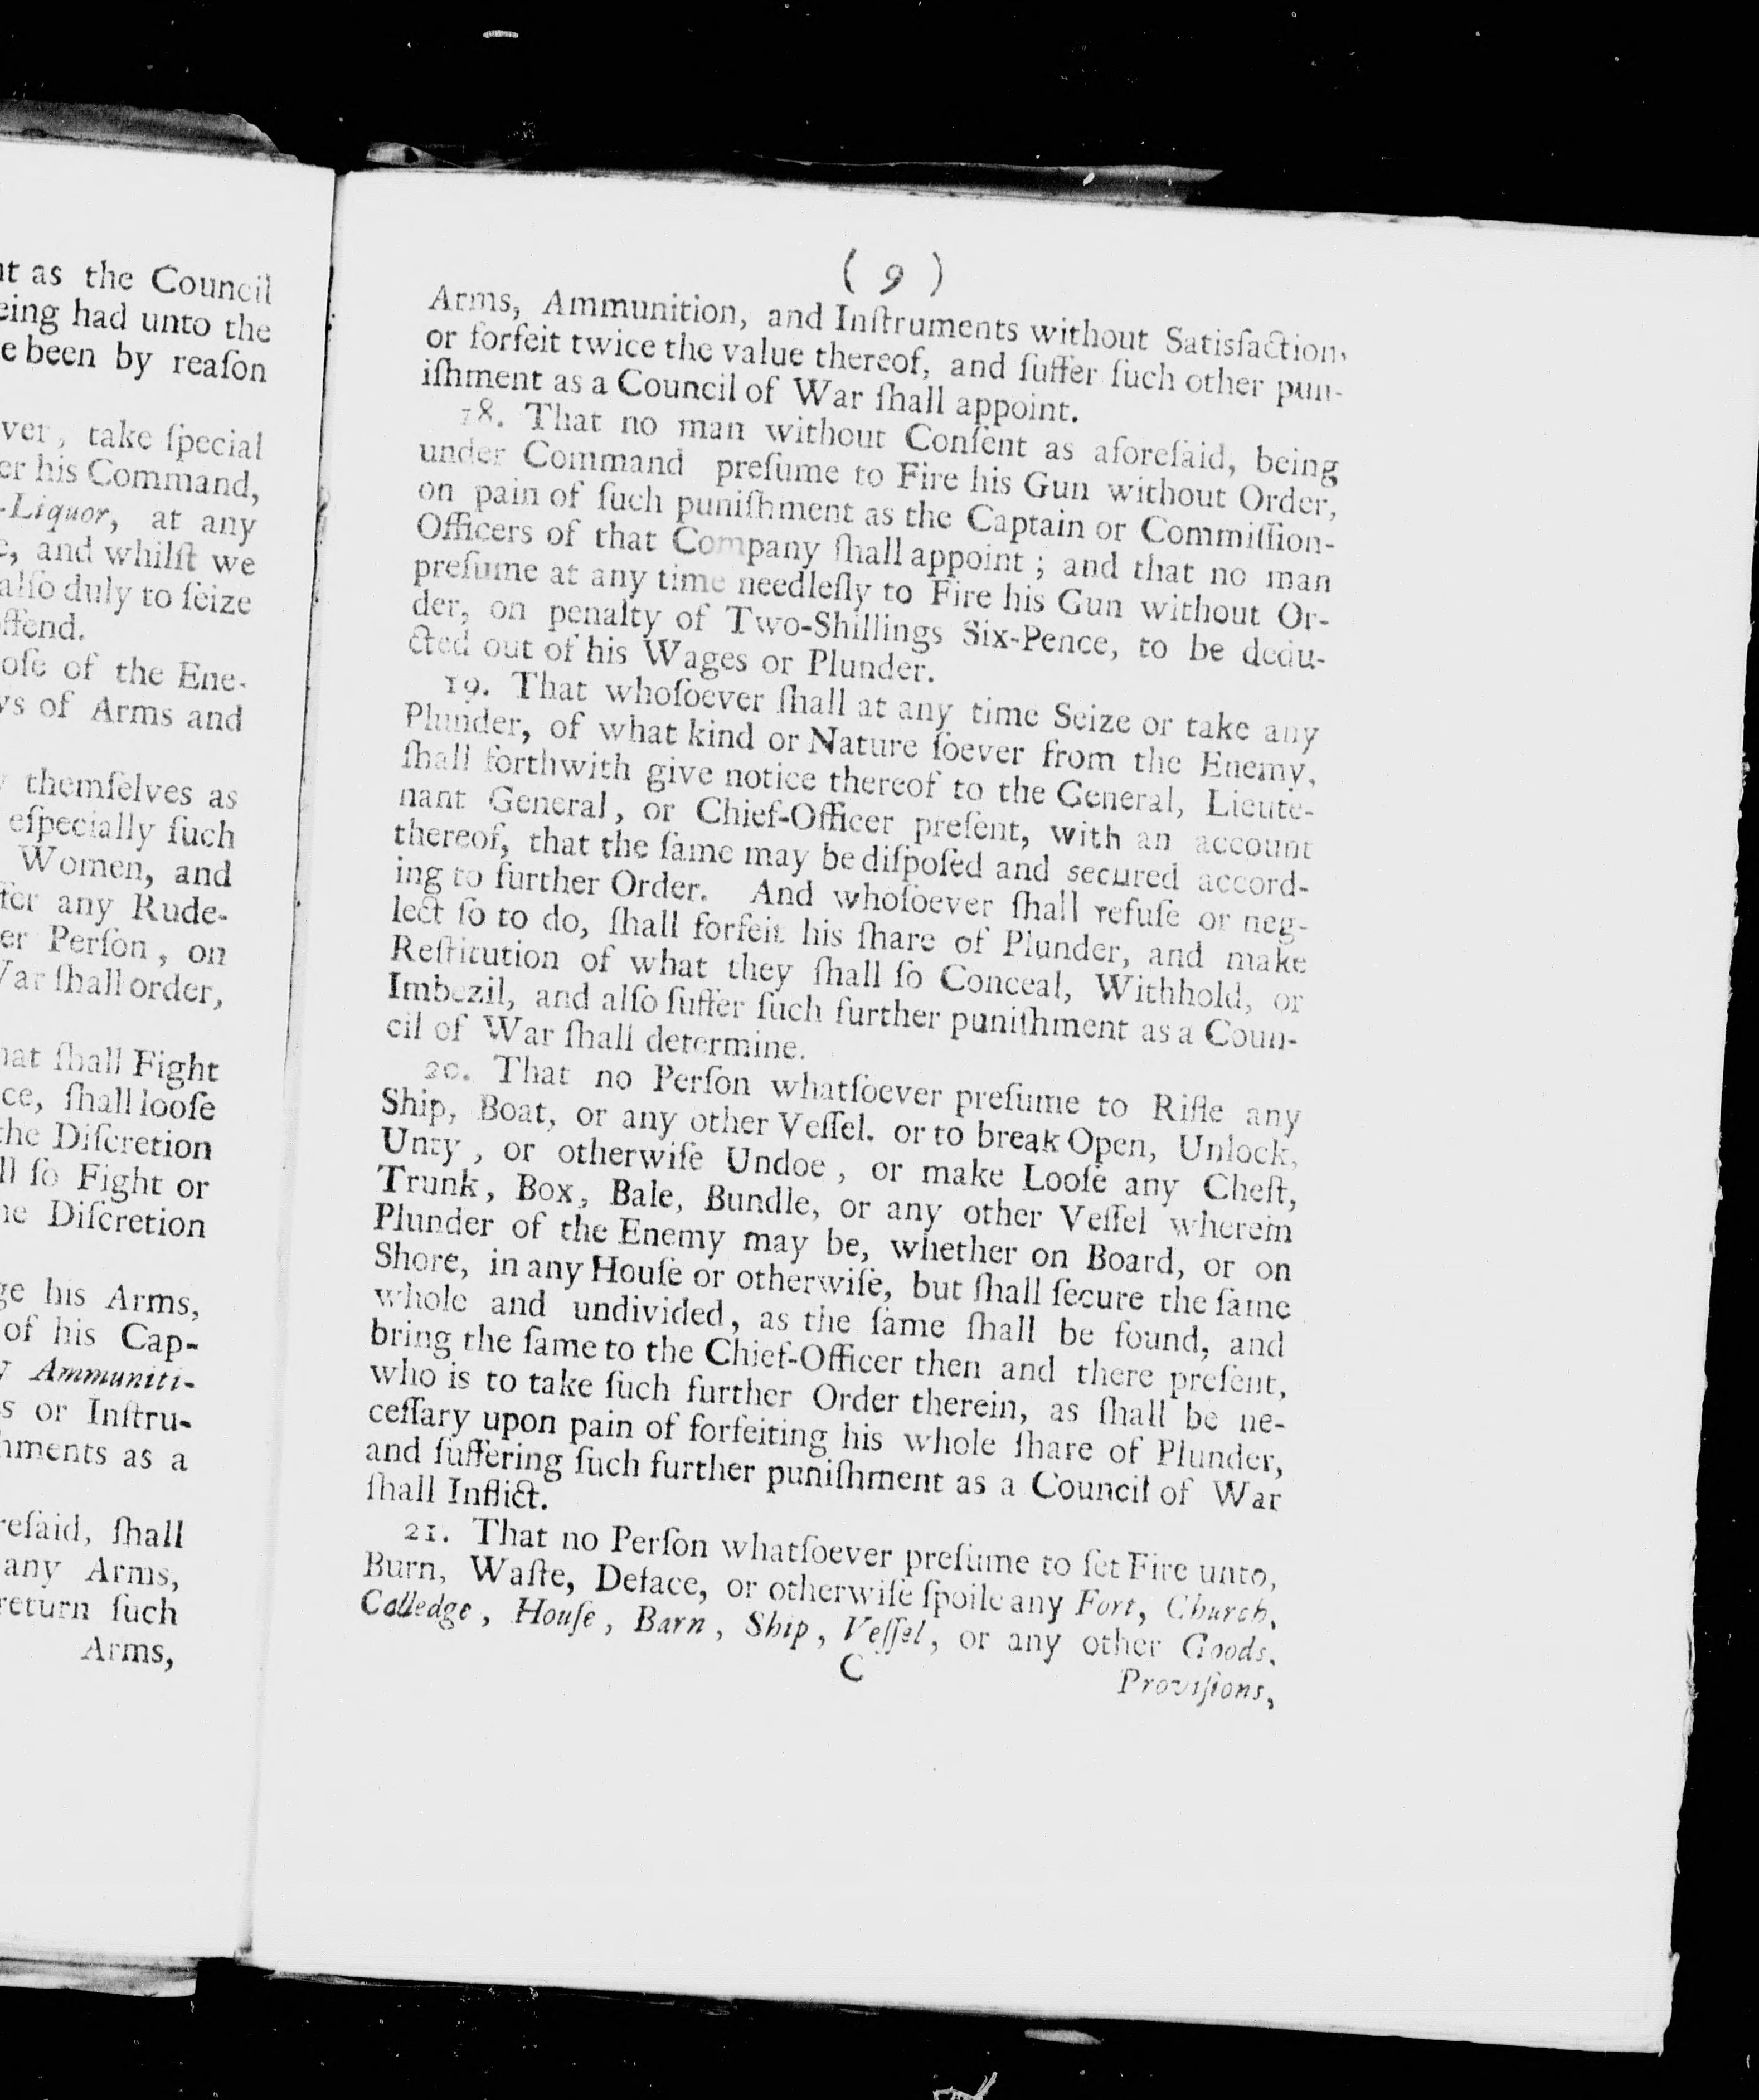 nt as the Council
eing had unto the
e been by reaſon
ver, take ſpecial
er his Command,
-Liquor, at any
e, and whilſt we
alſo duly to ſeize
ffend.
oſe of the Ene-
ys of Arms and
themſelves as
eſpecially ſuch
Women, and
fer any Rude-
er Perſon, on
War ſhall order,
hat ſhall Fight
ce, ſhall looſe
the Diſcretion
ll ſo Fight or
he Diſcretion
ge his Arms,
of his Cap-
y Ammuniti-
s or Inſtru-
hments as a
reſaid, ſhall
any Arms,
return ſuch
Arms,
( 9 )
Arms, Ammunition, and Inſtruments without Satisfaction,
or forfeit twice the value thereof, and ſuffer ſuch other pun-
iſhment as a Council of War ſhall appoint.
18. That no man without Conſent as aforeſaid, being
under Command preſume to Fire his Gun without Order,
on pain of ſuch puniſhment as the Captain or Commiſſion-
Officers of that Company ſhall appoint ; and that no man
preſume at any time needleſly to Fire his Gun without Or-
der, on penalty of Two-Shillings Six-Pence, to be dedu-
cted out of his Wages or Plunder.
19. That whoſoever ſhall at any time Seize or take any
Plunder, of what kind or Nature ſoever from the Enemy,
ſhall forthwith give notice thereof to the General, Lieute-
nant General, or Chief-Officer preſent, with an account
thereof, that the ſame may be diſpoſed and secured accord-
ing to further Order. And whoſoever ſhall refuſe or neg-
lect ſo to do, ſhall forfeit his ſhare of Plunder, and make
Reſtitution of what they ſhall ſo Conceal, Withhold, or
Imbezil, and alſo ſuffer ſuch further puniſhment as a Coun-
cil of War ſhall determine.
20. That no Perſon whatſoever preſume to Rifle any
Ship, Boat, or any other Veſſel. or to break Open, Unlock,
Unty, or otherwiſe Undoe, or make Looſe any Cheſt,
Trunk, Box, Bale, Bundle, or any other Veſſel wherein
Plunder of the Enemy may be, whether on Board, or on
Shore, in any Houſe or otherwiſe, but ſhall ſecure the ſame
whole and undivided, as the ſame ſhall be found, and
bring the ſame to the Chief-Officer then and there preſent,
who is to take ſuch further Order therein, as ſhall be ne-
ceſſary upon pain of forfeiting his whole ſhare of Plunder,
and ſuffering ſuch further puniſhment as a Council of War
ſhall Inflict.
21. That no Perſon whatſoever preſume to ſet Fire unto,
Burn, Waſte, Deface, or otherwiſe ſpoile any Fort, Church,
Colledge, Houſe, Barn, Ship, Veſſel, or any other Goods.
C
Proviſions,